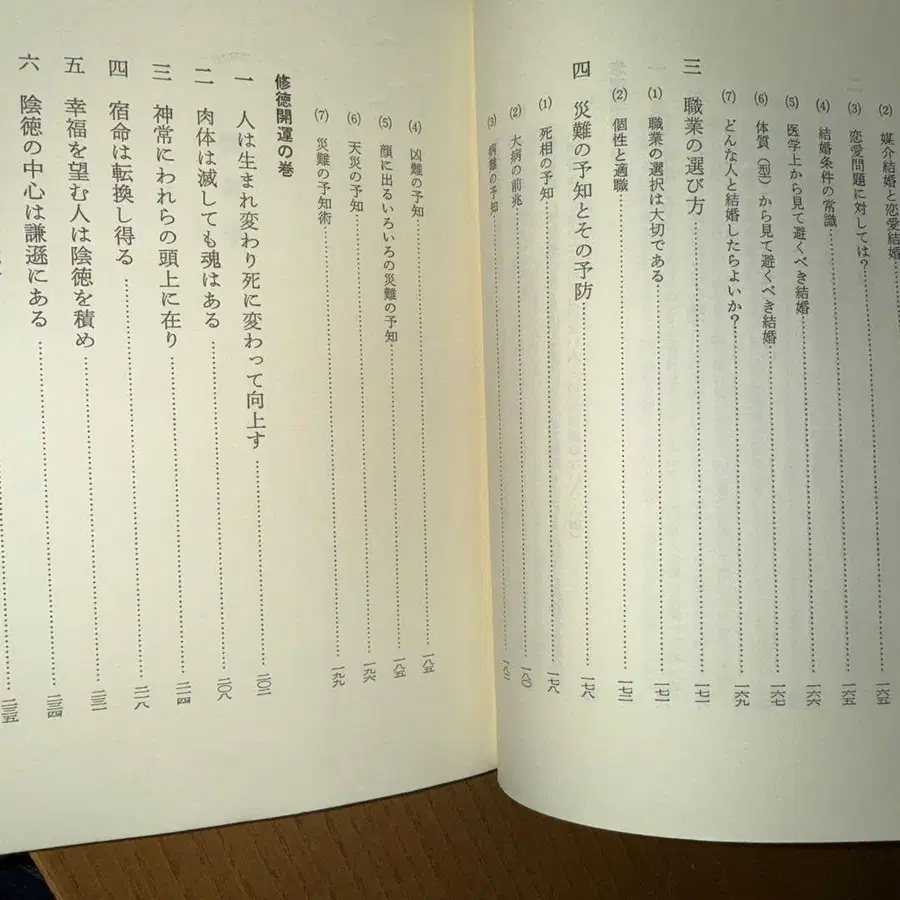 (2) 媒介結婚と恋愛結婚………一六五
(3) 恋愛問題に対しては?………一六五
(4) 結婚条件の常識………一六六
(5) 医学上から見て避くべき結婚………一六六
(6) 体質(型)から見て避くべき結婚………一六七
(7) どんな人と結婚したらよいか?………一六九
三 職業の選び方………一七一
(1) 職業の選択は大切である………一七一
(2) 個性と適職………一七二
四 災難の予知とその予防………一七八
(1) 死相の予知………一七八
(2) 大病の前兆………一八〇
(3) 病難の予知………一八二
(4) 凶難の予知………一八五
(5) 顔に出るいろいろの災難の予知………一八五
(6) 天災の予知………一九六
(7) 災難の予知術………一九九
修徳開運の巻
一 人は生まれ変わり死に変わって向上す………二〇二
二 肉体は滅しても魂はある………二〇八
三 神常にわれらの頭上に在り………二一四
四 宿命は転換し得る………二一八
五 幸福を望む人は陰徳を積め………二三二
六 陰徳の中心は謙遜にある………二三四
二三五